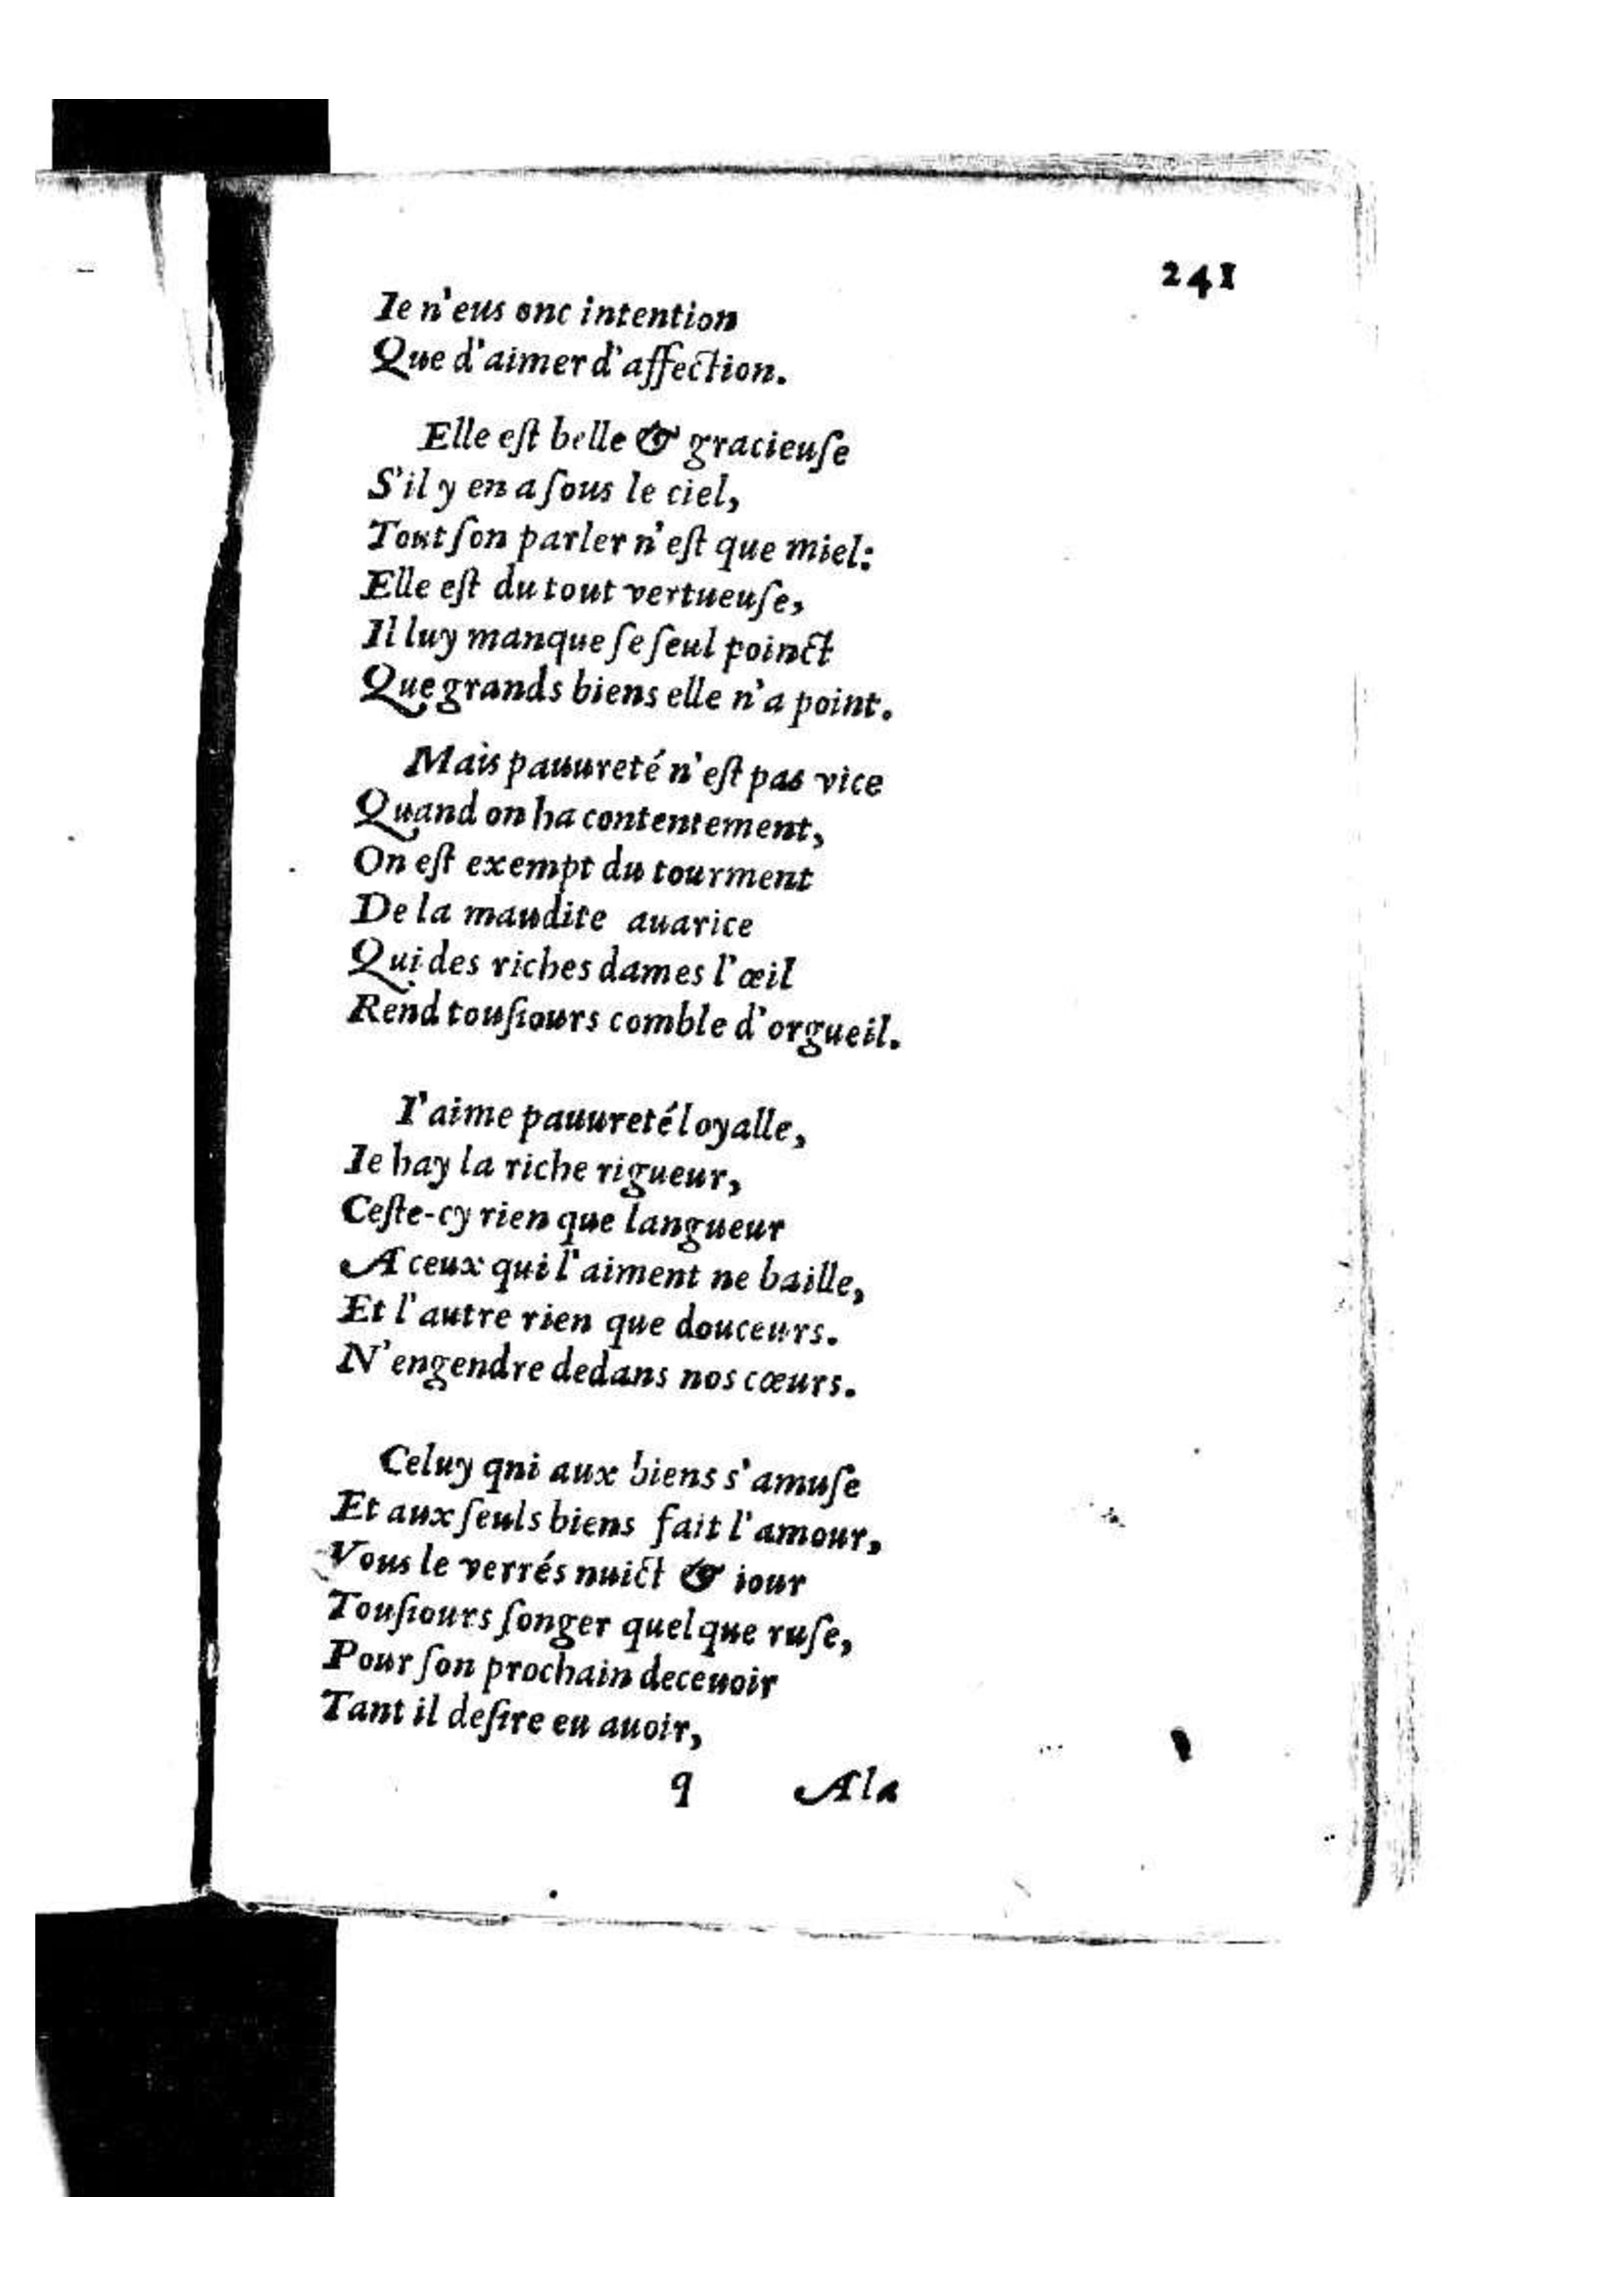 241
Ie n'eus onc intention
Que d'aimer d'affection.
Elle eſt belle & gracieuſe
S'il y en a ſous le ciel,
Tout ſon parler n'eſt que miel:
Elle eſt du tout vertueuſe,
Il luy manque ſe ſeul poinct
Que grands biens elle n'a point.
Mais pauureté n'eſt pas vice
Quand on ha contentement,
On eſt exempt du tourment
De la maudite auarice
Qui des riches dames l'œil
Rend touſiours comble d'orgueil.
I'aime pauureté loyalle,
Ie hay la riche rigueur,
Ceſte-cy rien que langueur
A ceux qui l'aiment ne baille,
Et l'autre rien que douceurs.
N'engendre dedans nos cœurs.
Celuy qni aux biens s'amuſe
Et aux ſeuls biens fait l'amour,
Vous le verrés nuict & iour
Touſiours ſonger quelque ruſe,
Pour ſon prochain deceuoir
Tant il deſire eu auoir,
q Ala